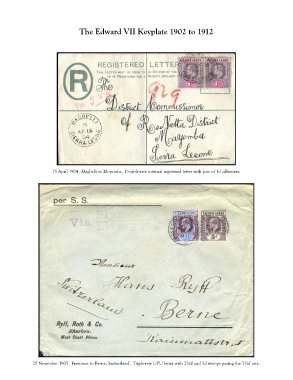 The Edward VII Keyplate 1902 to 1912
REGISTERED LETTER
R
The
District Commissioner
of Ronietta District
Moyamba
Sierra Leone
MAGBELLI
AP 15
04
SIERRA LEONE
15 April 1904 - Magbelli to Moyamba. Double rate internal registered letter with pair of 1d adhesives.
per S. S.
Via
Monsieur
Hans Ryff
Berne
Switzerland
Ryff, Roth & Co.
Sherbro.
West Coast Africa.
25 November 1905 - Freetown to Berne, Switzerland. Triple rate UPU letter with 2½d and 5d stamps paying the 7½d rate.